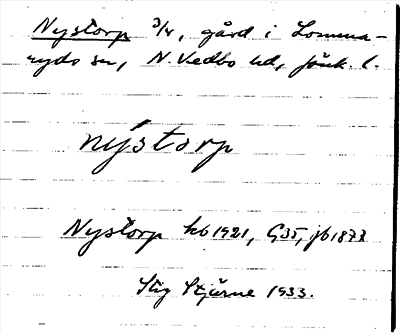 Nystorp 3/4, gård i Lomma-
ryds sn, N. Vedbo hd, Jönk. l.
nýstorp
Nystorp kb 1921, G35, jb 1873
Stig Stjärne 1933.